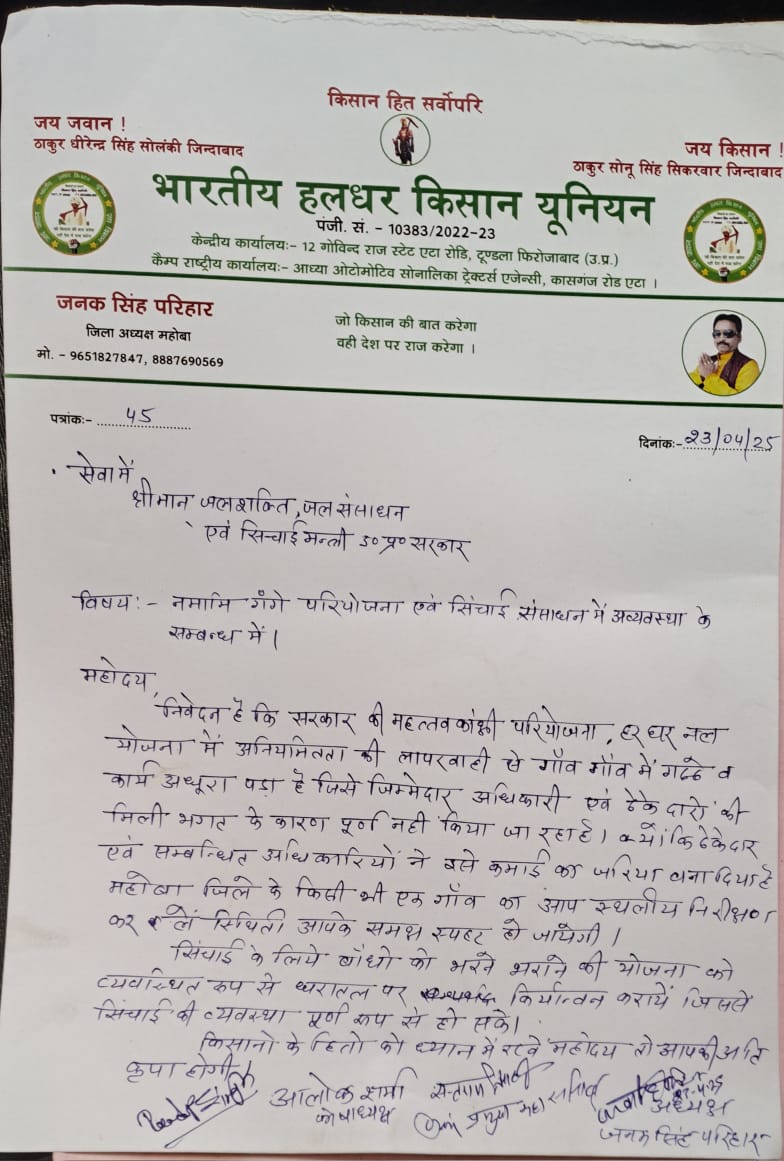 किसान हित सर्वोपरि
जय जवान !
ठाकुर धीरेन्द्र सिंह सोलंकी जिन्दाबाद
जय किसान !
ठाकुर सोनू सिंह सिकरवार जिन्दाबाद
भारतीय हलधर किसान यूनियन
पंजी. सं. - 10383/2022-23
केन्द्रीय कार्यालयः- 12 गोविन्द राज स्टेट एटा रोडि, टूण्डला फिरोजाबाद (उ.प्र.)
कैम्प राष्ट्रीय कार्यालयः- आध्या ओटोमोटिव सोनालिका ट्रेक्टर्स एजेन्सी, कासगंज रोड एटा ।
जनक सिंह परिहार
जिला अध्यक्ष महोबा
मो. - 9651827847, 8887690569
जो किसान की बात करेगा
वही देश पर राज करेगा ।
पत्रांकः- 45
दिनांकः- 23/04/25
सेवा में
श्रीमान जलशक्ति, जल संसाधन
एवं सिचाई मन्त्री उ०प्र० सरकार
विषय :- नमामि गँगे परियोजना एवं सिंचाई संसाधन में अव्यवस्था के
सम्बन्ध में ।
महोदय,
निवेदन है कि सरकार की महत्तवकांक्षी परियोजना, हर घर नल
योजना में अनियमितता की लापरवाही से गाँव गाँव में गढढे व
कार्य अधूरा पड़ा है जिसे जिम्मेदार अधिकारी एवं ठेकेदारों की
मिली भगत के कारण पूर्ण नही किया जा रहा है। क्यों कि ठेकेदार
एवं सम्बन्धित अधिकारियों ने इसे कमाई का जरिया बना दिया है
महोबा जिले के किसी भी एक गाँव का आप स्थलीय निरीक्षण
कर लें स्थिती आपके समक्ष स्पष्ट हो जायेगी।
सिंचाई के लिये बाँधो को भरने भराने की योजना को
व्यवस्थित रूप से धरातल पर किर्यान्वन करायें जिससे
सिंचाई की व्यवस्था पूर्ण रूप से हो सके।
किसानो के हितो को ध्यान में रखे महोदय तो आपकी अति
कृपा होगी।
आलोक शर्मा
कोषाध्यक्ष
महा सचिव
अध्यक्ष
जनक सिंह परिहार